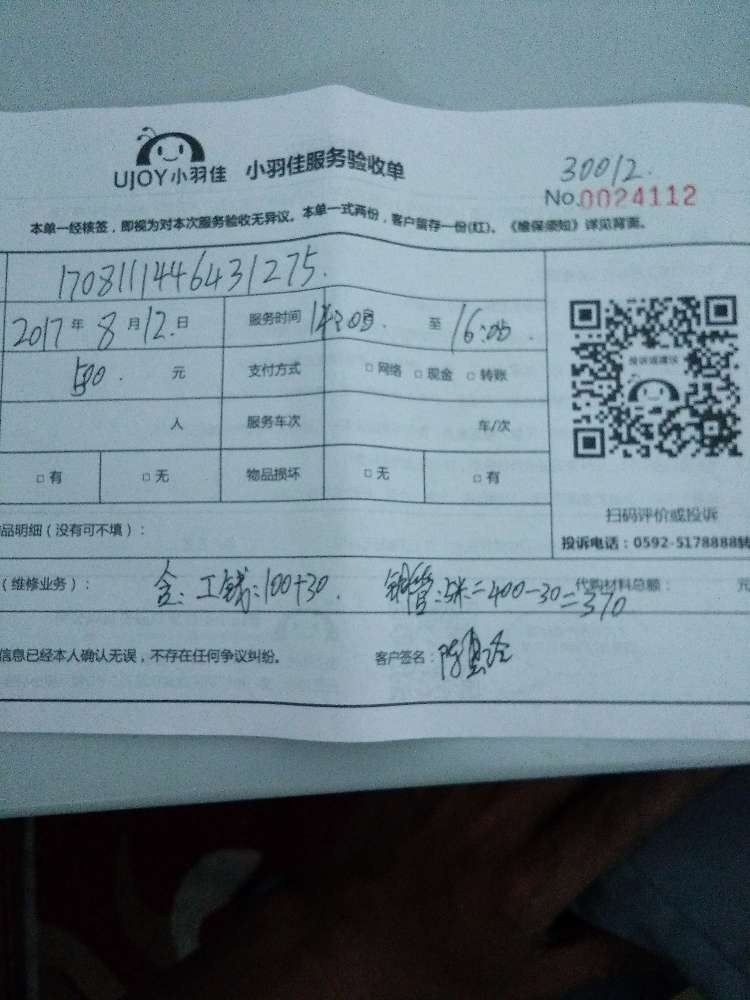 UJOY小羽佳 小羽佳服务验收单
30012.
No.0024112
本单一经核签，即视为对本次服务验收无异议。本单一式两份，客户留存一份(红)。《维保须知》详见背面。
1708111446431275.
2017年 8月12日 服务时间 14:05. 至 16:05.
500. 元 支付方式 □ 网络 □ 现金 □ 转账
投诉或建议
人 服务车次 车/次
□ 有 □ 无 物品损坏 □ 无 □ 有
扫码评价或投诉
品明细（没有可不填）：
投诉电话：0592-5178888转
（维修业务）： 含：工钱：100+30. 铜管：5米=400-30=370 代购材料总额： 元
信息已经本人确认无误，不存在任何争议纠纷。 客户签名：陈